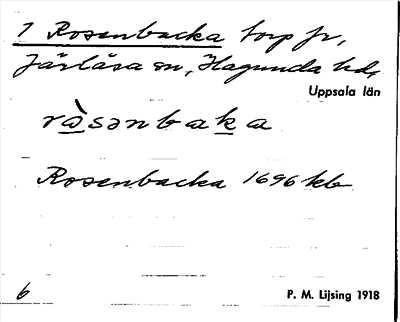 1 Rosenbacka torp fr,
Järlåsa sn, Hagunda hd,
Uppsala län
rὰsənbaka
Rosenbacka 1696 kb
6
P. M. Lijsing 1918